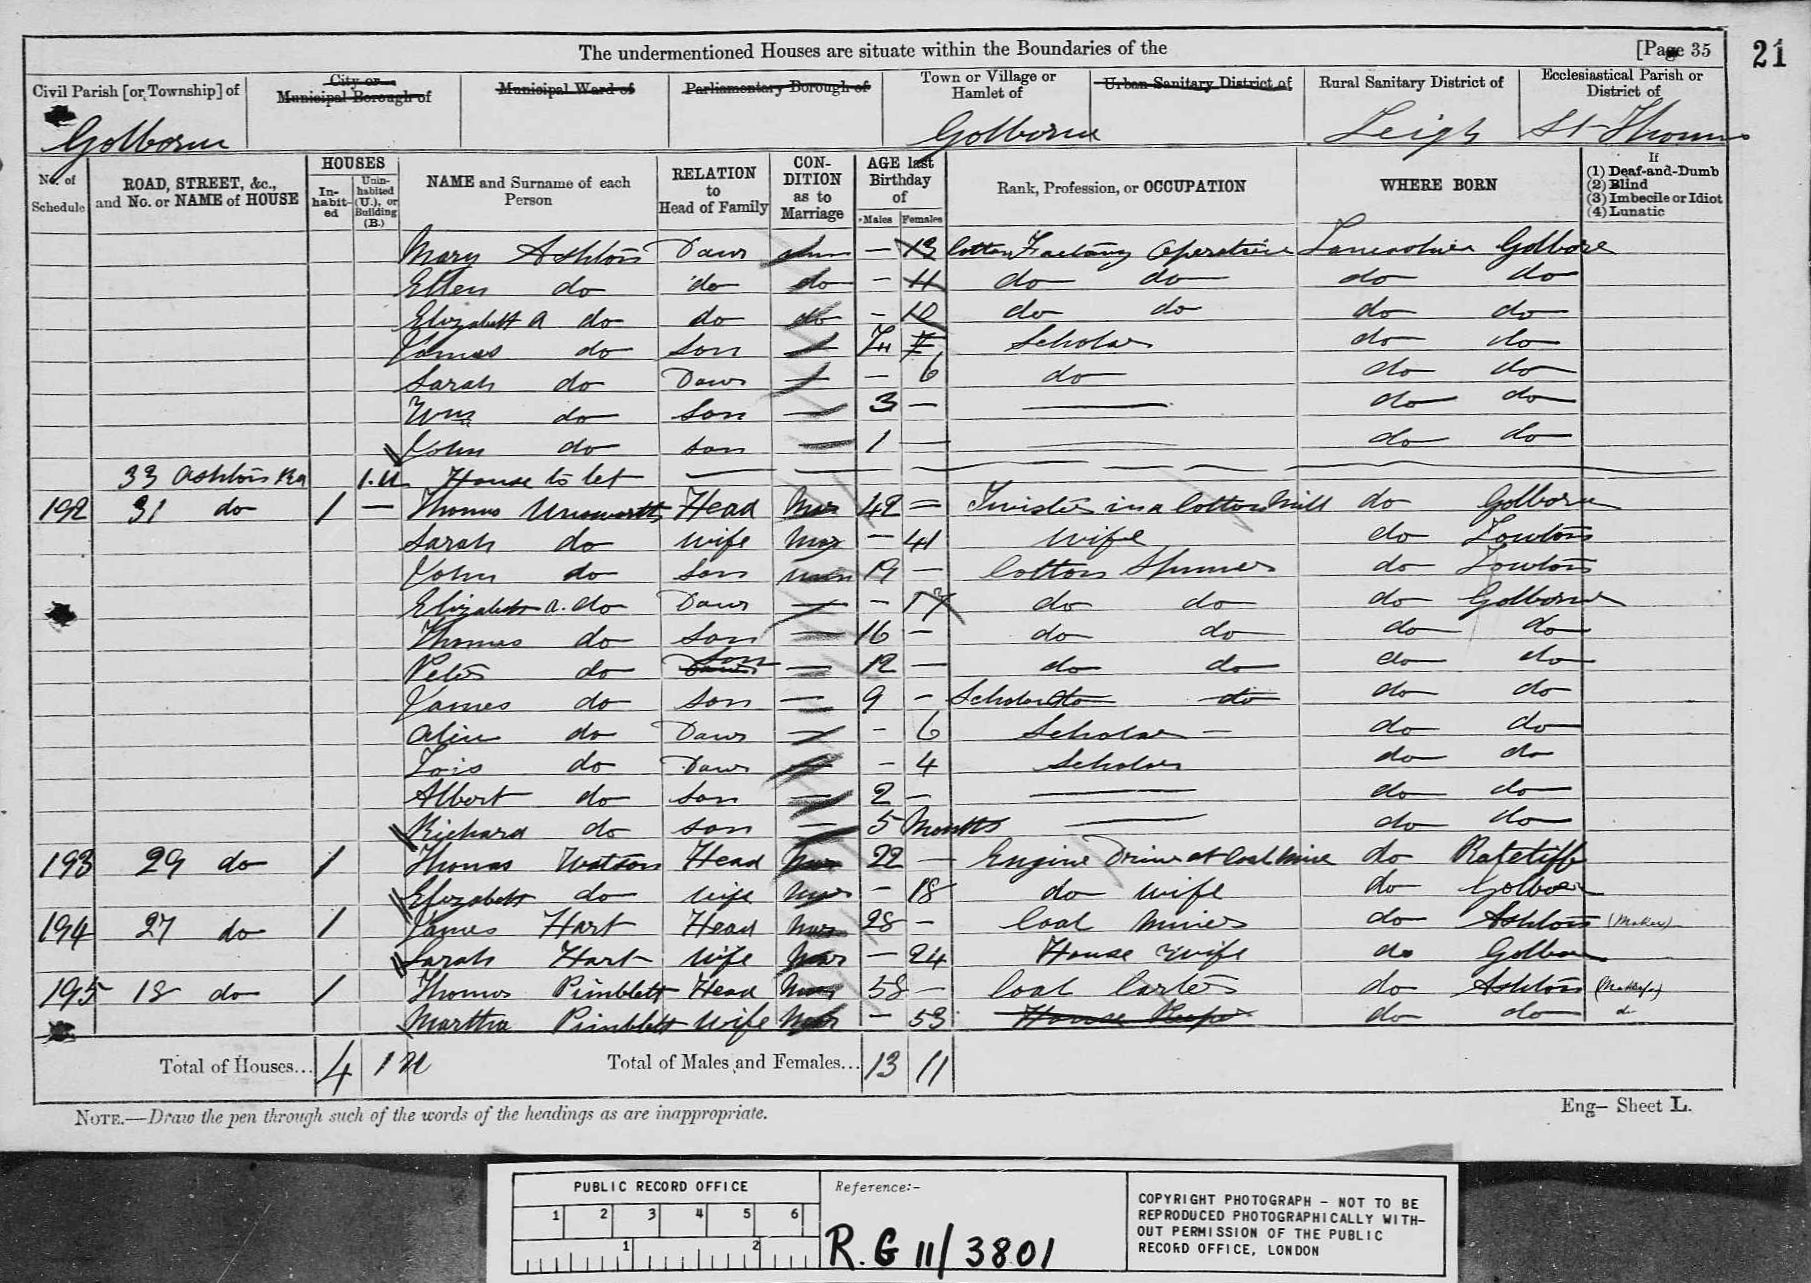 The undermentioned Houses are situate within the Boundaries of the [Page 35 21
Civil Parish [or Township] of City or Municipal Borough of Municipal Ward of Parliamentary Borough of Town or Village or Hamlet of Urban Sanitary District of Rural Sanitary District of Ecclesiastical Parish or District of
Golborne Golborne Leigh St Thomas
No. of Schedule ROAD, STREET, &c., and No. or NAME of HOUSE HOUSES In-habit-ed Unin-habited (U.), or Building (B.) NAME and Surname of each Person RELATION to Head of Family CON-DITION as to Marriage AGE last Birthday of Males Females Rank, Profession, or OCCUPATION WHERE BORN If (1) Deaf-and-Dumb (2) Blind (3) Imbecile or Idiot (4) Lunatic
Mary Ashton Daur — 13 Cotton Factory Operative Lancashire Golborne
Ellen do do do — 11 do do do do
Elizabeth A do do do — 10 do do do do
James do Son — Scholar do do
Sarah do Daur — — 6 do do do
Wm do Son — 3 — — do do
John do Son — 1 — — do do
33 Ashton Rd 1.U House to let
192 31 do 1 — Thomas Unsworth Head Mar 42 — Twister in a Cotton Mill do Golborne
Sarah do Wife Mar — 41 Wife do Lowton
John do Son Unm 19 — Cotton Spinner do Lowton
Elizabeth A. do Daur — — 17 do do do Golborne
Thomas do Son — 16 — do do do do
Peter do Son — 12 — do do do do
James do Son — 9 — Scholar do do do do
Alice do Daur — — 6 Scholar — do do
Lois do Daur — — 4 Scholar do do
Albert do Son — 2 — — do do
Richard do Son — 5 Months — do do
193 29 do 1 Thomas Watson Head Mar 22 — Engine Driver at Coal Mine do Ratcliff
Elizabeth do Wife Mar — 18 do Wife do Golborne
194 27 do 1 James Hart Head Mar 28 — Coal Miner do Ashton
Sarah Hart Wife Mar — 24 House Wife do Golborne
195 18 do 1 Thomas Pimblett Head Mar 58 — Coal Carter do Ashton
Martha Pimblett Wife Mar — 53 House Keeper do do
Total of Houses... 4 1 U Total of Males and Females... 13 11
NOTE.—Draw the pen through such of the words of the headings as are inappropriate. Eng— Sheet L.
PUBLIC RECORD OFFICE
1 2 3 4 5 6
1 2
Reference:-
R.G 11/3801
COPYRIGHT PHOTOGRAPH – NOT TO BE
REPRODUCED PHOTOGRAPHICALLY WITH-
OUT PERMISSION OF THE PUBLIC
RECORD OFFICE, LONDON